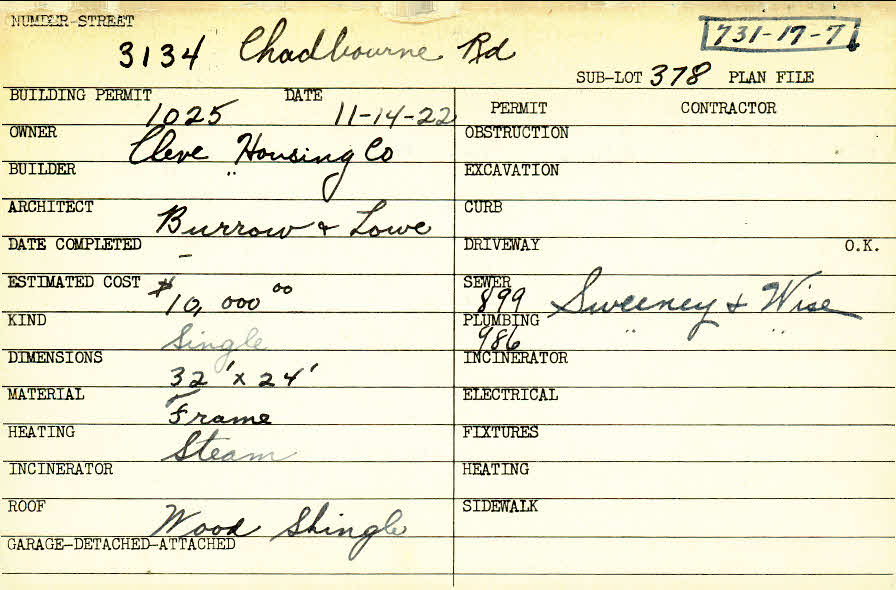 NUMBER-STREET
3134 Chadbourne Rd
731-17-71
SUB-LOT 378 PLAN FILE
BUILDING PERMIT 1025 DATE 11-14-22
OWNER Cleve Housing Co
BUILDER "
ARCHITECT Burrow & Lowe
DATE COMPLETED -
ESTIMATED COST $10,000 00
KIND Single
DIMENSIONS 32' x 24'
MATERIAL Frame
HEATING Steam
INCINERATOR
ROOF Wood Shingle
GARAGE-DETACHED-ATTACHED
PERMIT CONTRACTOR
OBSTRUCTION
EXCAVATION
CURB
DRIVEWAY O.K.
SEWER 899 Sweeney & Wise
PLUMBING 986 " "
INCINERATOR
ELECTRICAL
FIXTURES
HEATING
SIDEWALK